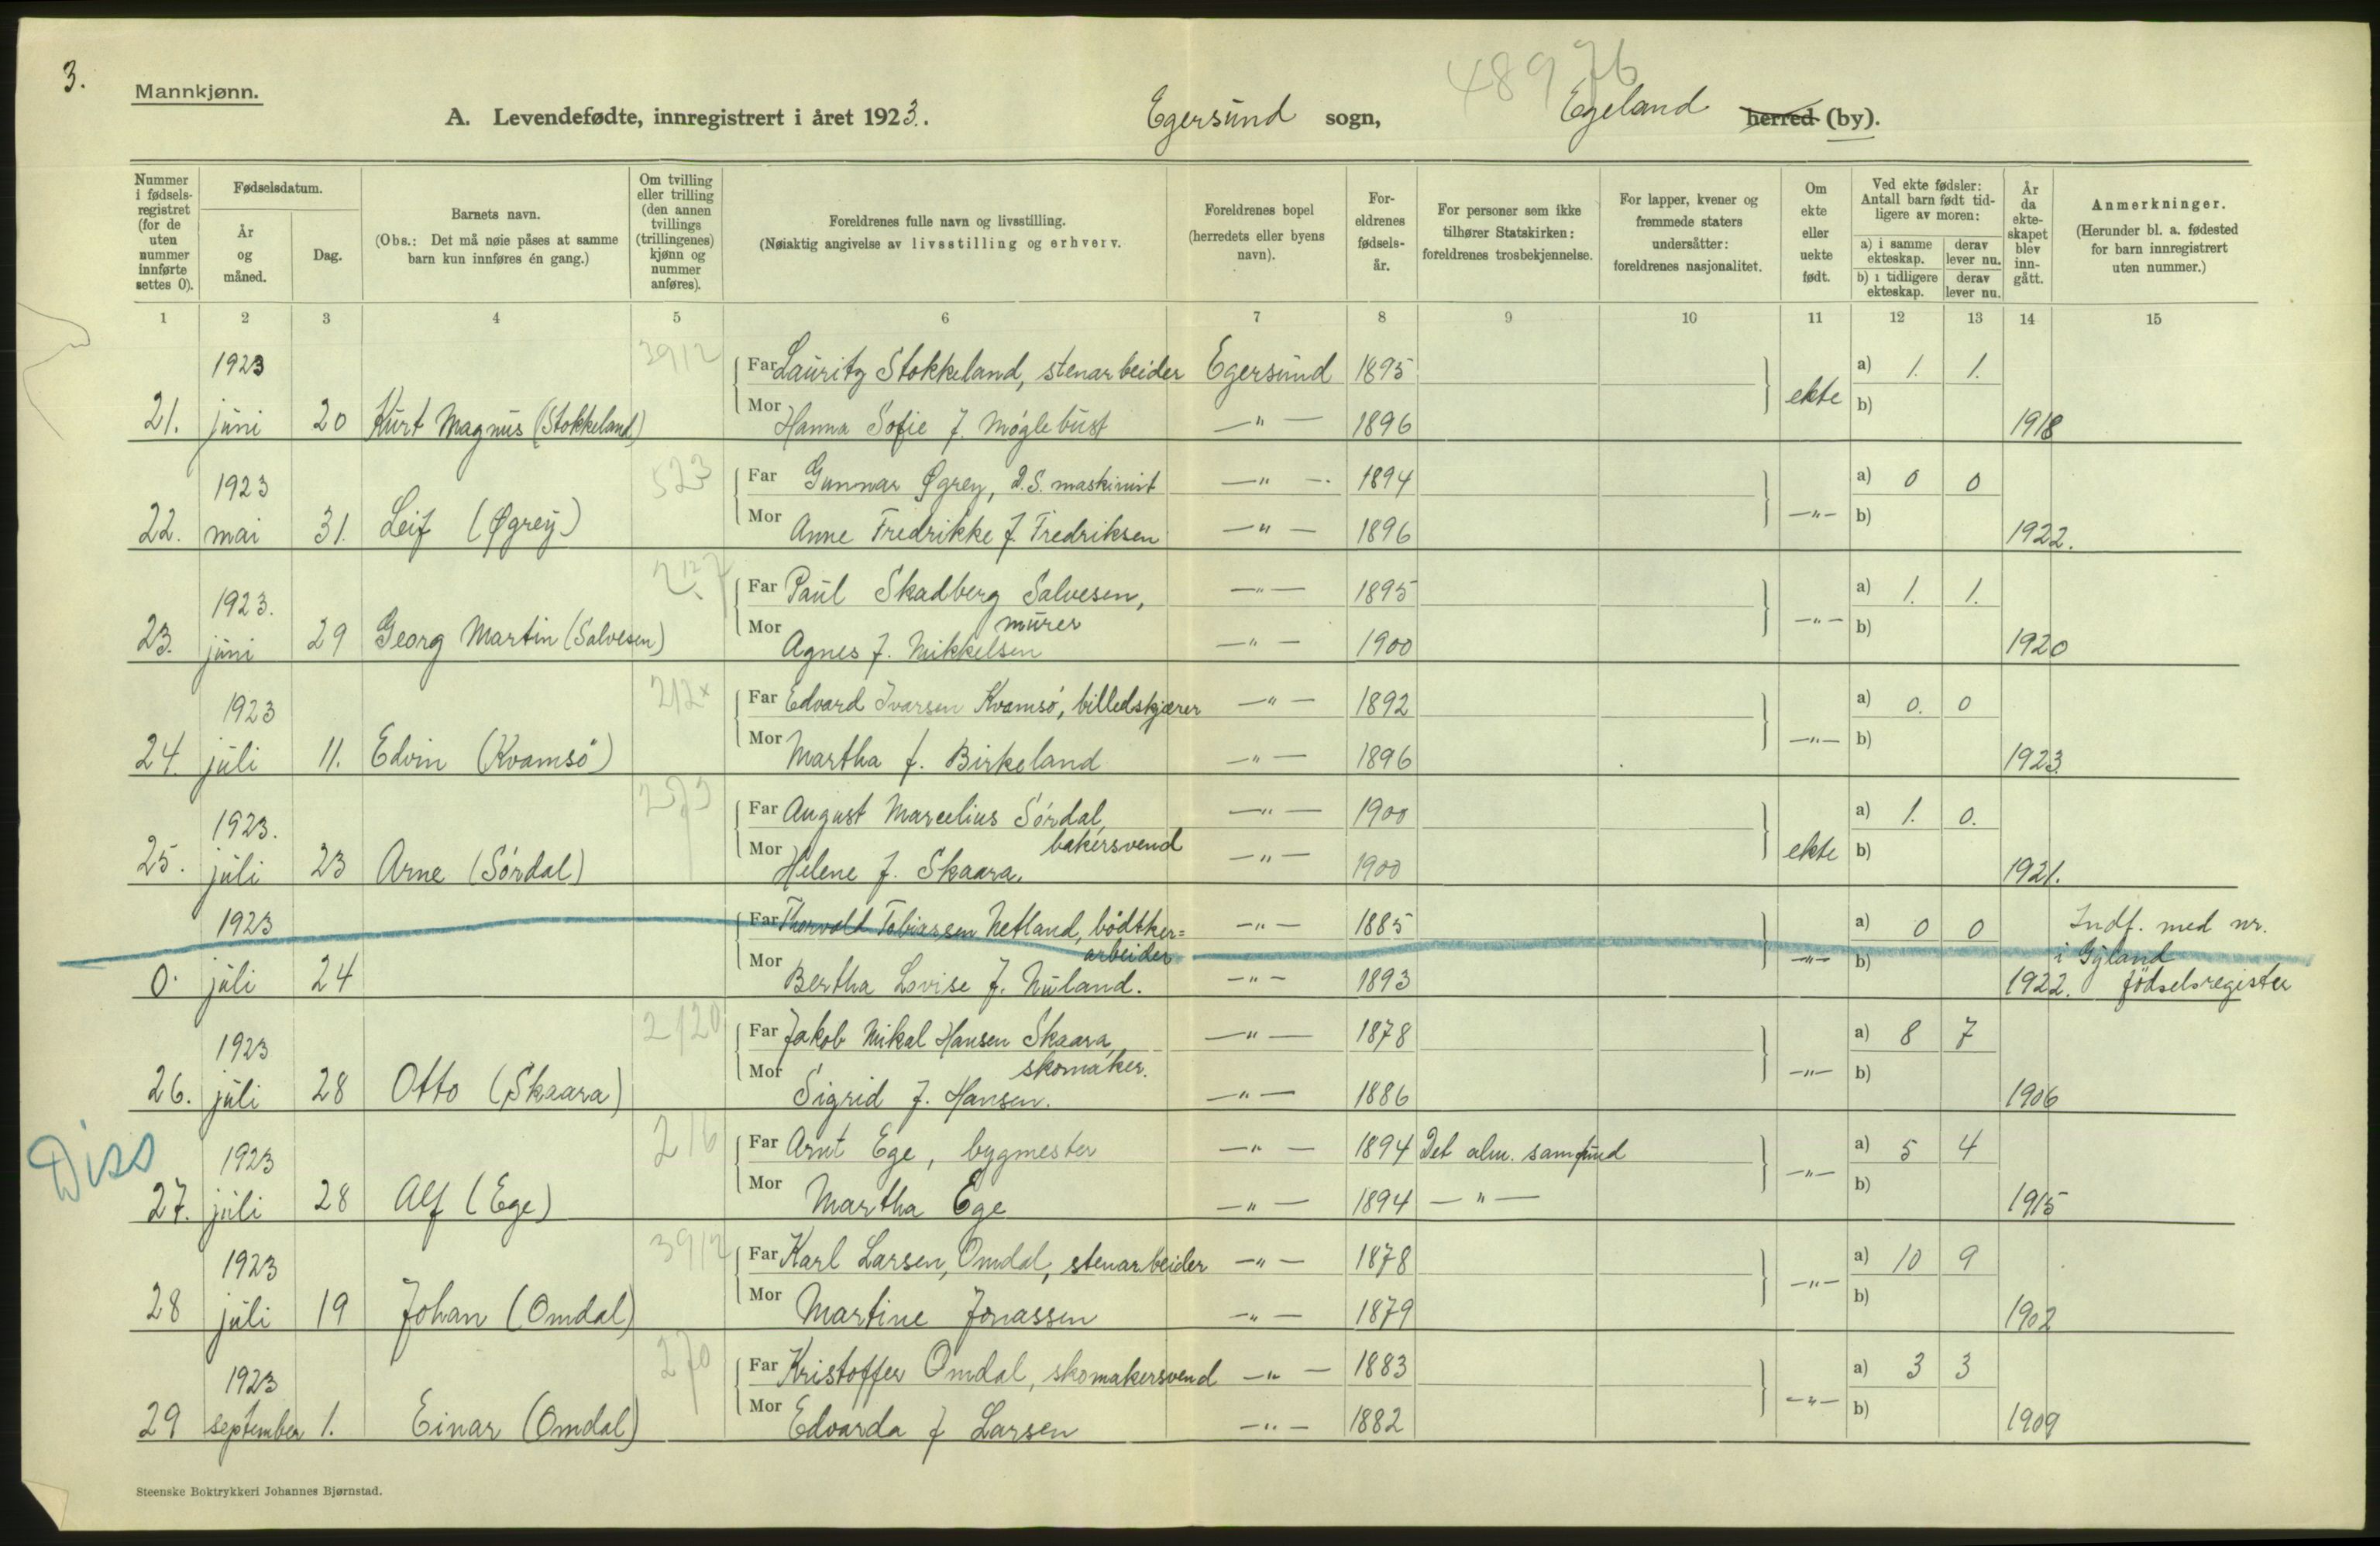 3.
48976
Mannkjønn.
A. Levendefødte, innregistrert i året 1923. Egersund sogn, Egeland herred (by).
Nummer i fødselsregistret (for de uten nummer innførte settes 0).
Fødselsdatum.
År og måned.
Dag.
Barnets navn.
(Obs.: Det må nøie påses at samme barn kun innføres én gang.)
Om tvilling eller trilling (den annen tvillings (trillingenes) kjønn og nummer anføres).
Foreldrenes fulle navn og livsstilling.
(Nøiaktig angivelse av livsstilling og erhverv.
Foreldrenes bopel (herredets eller byens navn).
Foreldrenes fødselsår.
For personer som ikke tilhører Statskirken: foreldrenes trosbekjennelse.
For lapper, kvener og fremmede staters undersåtter: foreldrenes nasjonalitet.
Om ekte eller uekte født.
Ved ekte fødsler: Antall barn født tidligere av moren:
a) i samme ekteskap. derav lever nu.
b) i tidligere ekteskap. derav lever nu.
År da ekteskapet blev inngått.
Anmerkninger.
(Herunder bl. a. fødested for barn innregistrert uten nummer.)
1 2 3 4 5 6 7 8 9 10 11 12 13 14 15
1923 3912 Far Lauritz Stokkeland, stenarbeider Egersund 1895 a) 1. 1.
21. juni 20 Kurt Magnus (Stokkeland) Mor Hanna Sofie f. Møglebust —"— 1896 ekte b) 1918
1923 523 Far Gunnar Øgrey, D.S. maskinist —"— 1894 a) 0 0
22. mai 31. Leif (Øgrey) Mor Anne Fredrikke f. Fredriksen —"— 1896 —"— b) 1922.
1923. Far Paul Skadberg Salvesen, —"— 1895 a) 1. 1.
murer
23. juni 29 Georg Martin (Salvesen) Mor Agnes f. Mikkelsen —"— 1900 —"— b) 1920
1923 212x Far Edvard Ivarsen Kvamsø, billedskjærer —"— 1892 a) 0. 0
24. juli 11. Edvin (Kvamsø) Mor Martha f. Birkeland —"— 1896 —"— b) 1923.
1923. Far August Marcelius Sørdal, —"— 1900 a) 1. 0.
bakersvend
25. juli 23 Arne (Sørdal) Mor Helene f. Skaara. —"— 1900 ekte b) 1921.
1923 Far Thorvald Tobiassen Netland, bødtker= —"— 1885 a) 0 0 Indf. med nr.
arbeider i Gyland
0. juli 24 Mor Bertha Lovise f. Nuland. —"— 1893 —"— b) 1922. fødselsregister
1923 2120 Far Jakob Mikal Hansen Skaara, —"— 1878 a) 8 7
skomaker.
26. juli 28 Otto (Skaara) Mor Sigrid f. Hansen. —"— 1886 —"— b) 1906
Diss
1923 216 Far Arnt Ege, bygmester —"— 1894 Det alm. samfund a) 5 4
27. juli 28 Alf (Ege) Mor Martha Ege —"— 1894 —"— —"— b) 1915
1923 3912 Far Karl Larsen, Omdal, stenarbeider —"— 1878 a) 10 9
28 juli 19 Johan (Omdal) Mor Martine Jonassen —"— 1879 —"— b) 1902
1923 270 Far Kristoffer Omdal, skomakersvend —"— 1883 a) 3 3
29 september 1. Einar (Omdal) Mor Edvarda f Larsen —"— 1882 —"— b) 1909
Steenske Boktrykkeri Johannes Bjørnstad.